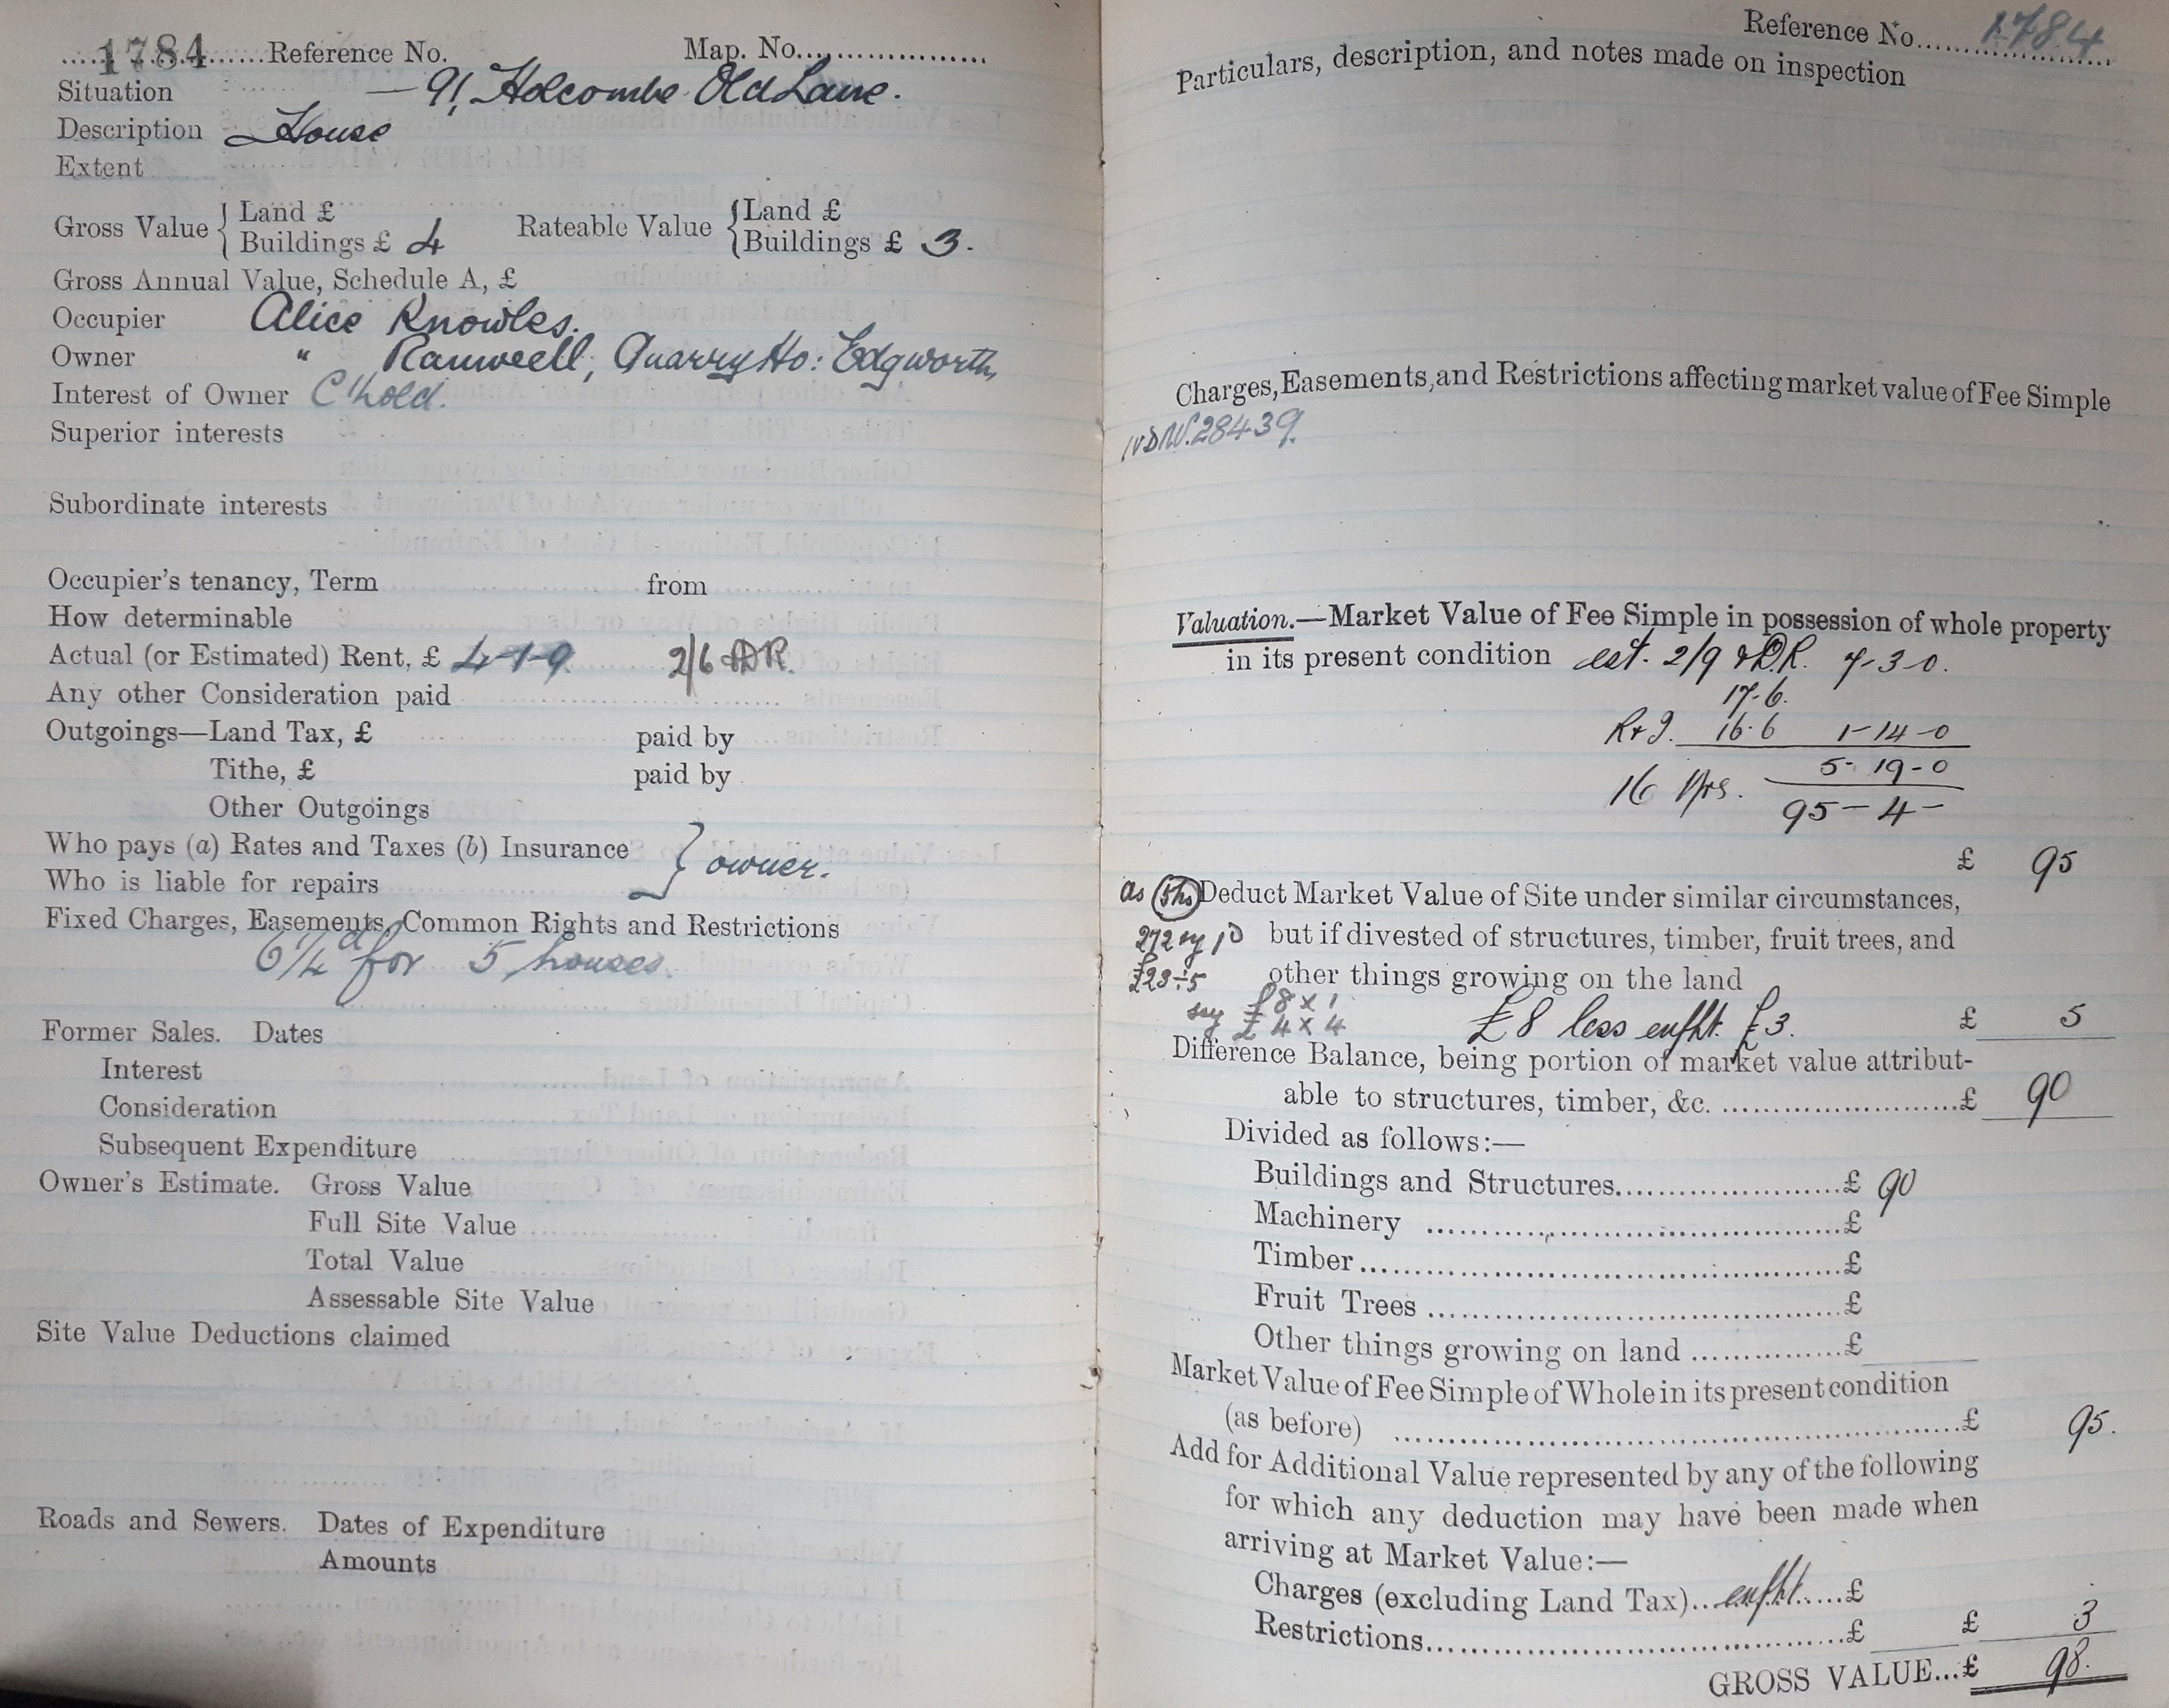 1784 Reference No. Map. No.
Situation — 91, Holcombe Old Lane.
Description House
Extent
Gross Value { Land £ Rateable Value { Land £
Buildings £ 4 Buildings £ 3.
Gross Annual Value, Schedule A, £
Occupier Alice Knowles.
Owner " Ramwell, Quarry Ho: Edgworth,
Interest of Owner C'hold.
Superior interests
Subordinate interests
Occupier's tenancy, Term from
How determinable
Actual (or Estimated) Rent, £ 4-1-9 2/6 DR.
Any other Consideration paid
Outgoings—Land Tax, £ paid by
Tithe, £ paid by
Other Outgoings
Who pays (a) Rates and Taxes (b) Insurance } owner.
Who is liable for repairs
Fixed Charges, Easements, Common Rights and Restrictions
6 1/4d for 5 houses.
Former Sales. Dates
Interest
Consideration
Subsequent Expenditure
Owner's Estimate. Gross Value
Full Site Value
Total Value
Assessable Site Value
Site Value Deductions claimed
Roads and Sewers. Dates of Expenditure
Amounts
Reference No. 1784
Particulars, description, and notes made on inspection
Charges, Easements, and Restrictions affecting market value of Fee Simple
28439.
Valuation.—Market Value of Fee Simple in possession of whole property
in its present condition est. 2/9 & DR. 7-3-0.
17-6.
R & I. 16.6 1-14-0
5-19-0
16 Yrs.
95-4-
£ 95
as (5hs) Deduct Market Value of Site under similar circumstances,
272 sq yd but if divested of structures, timber, fruit trees, and
£23÷5 other things growing on the land
say £8 x 1
£4 x 4 £8 less enfht. £3. £ 5
Difference Balance, being portion of market value attribut-
able to structures, timber, &c. £ 90
Divided as follows:—
Buildings and Structures £ 90
Machinery £
Timber £
Fruit Trees £
Other things growing on land £
Market Value of Fee Simple of Whole in its present condition
(as before) £ 95.
Add for Additional Value represented by any of the following
for which any deduction may have been made when
arriving at Market Value:—
Charges (excluding Land Tax) enfht. £
Restrictions £ £ 3
GROSS VALUE...£ 98.